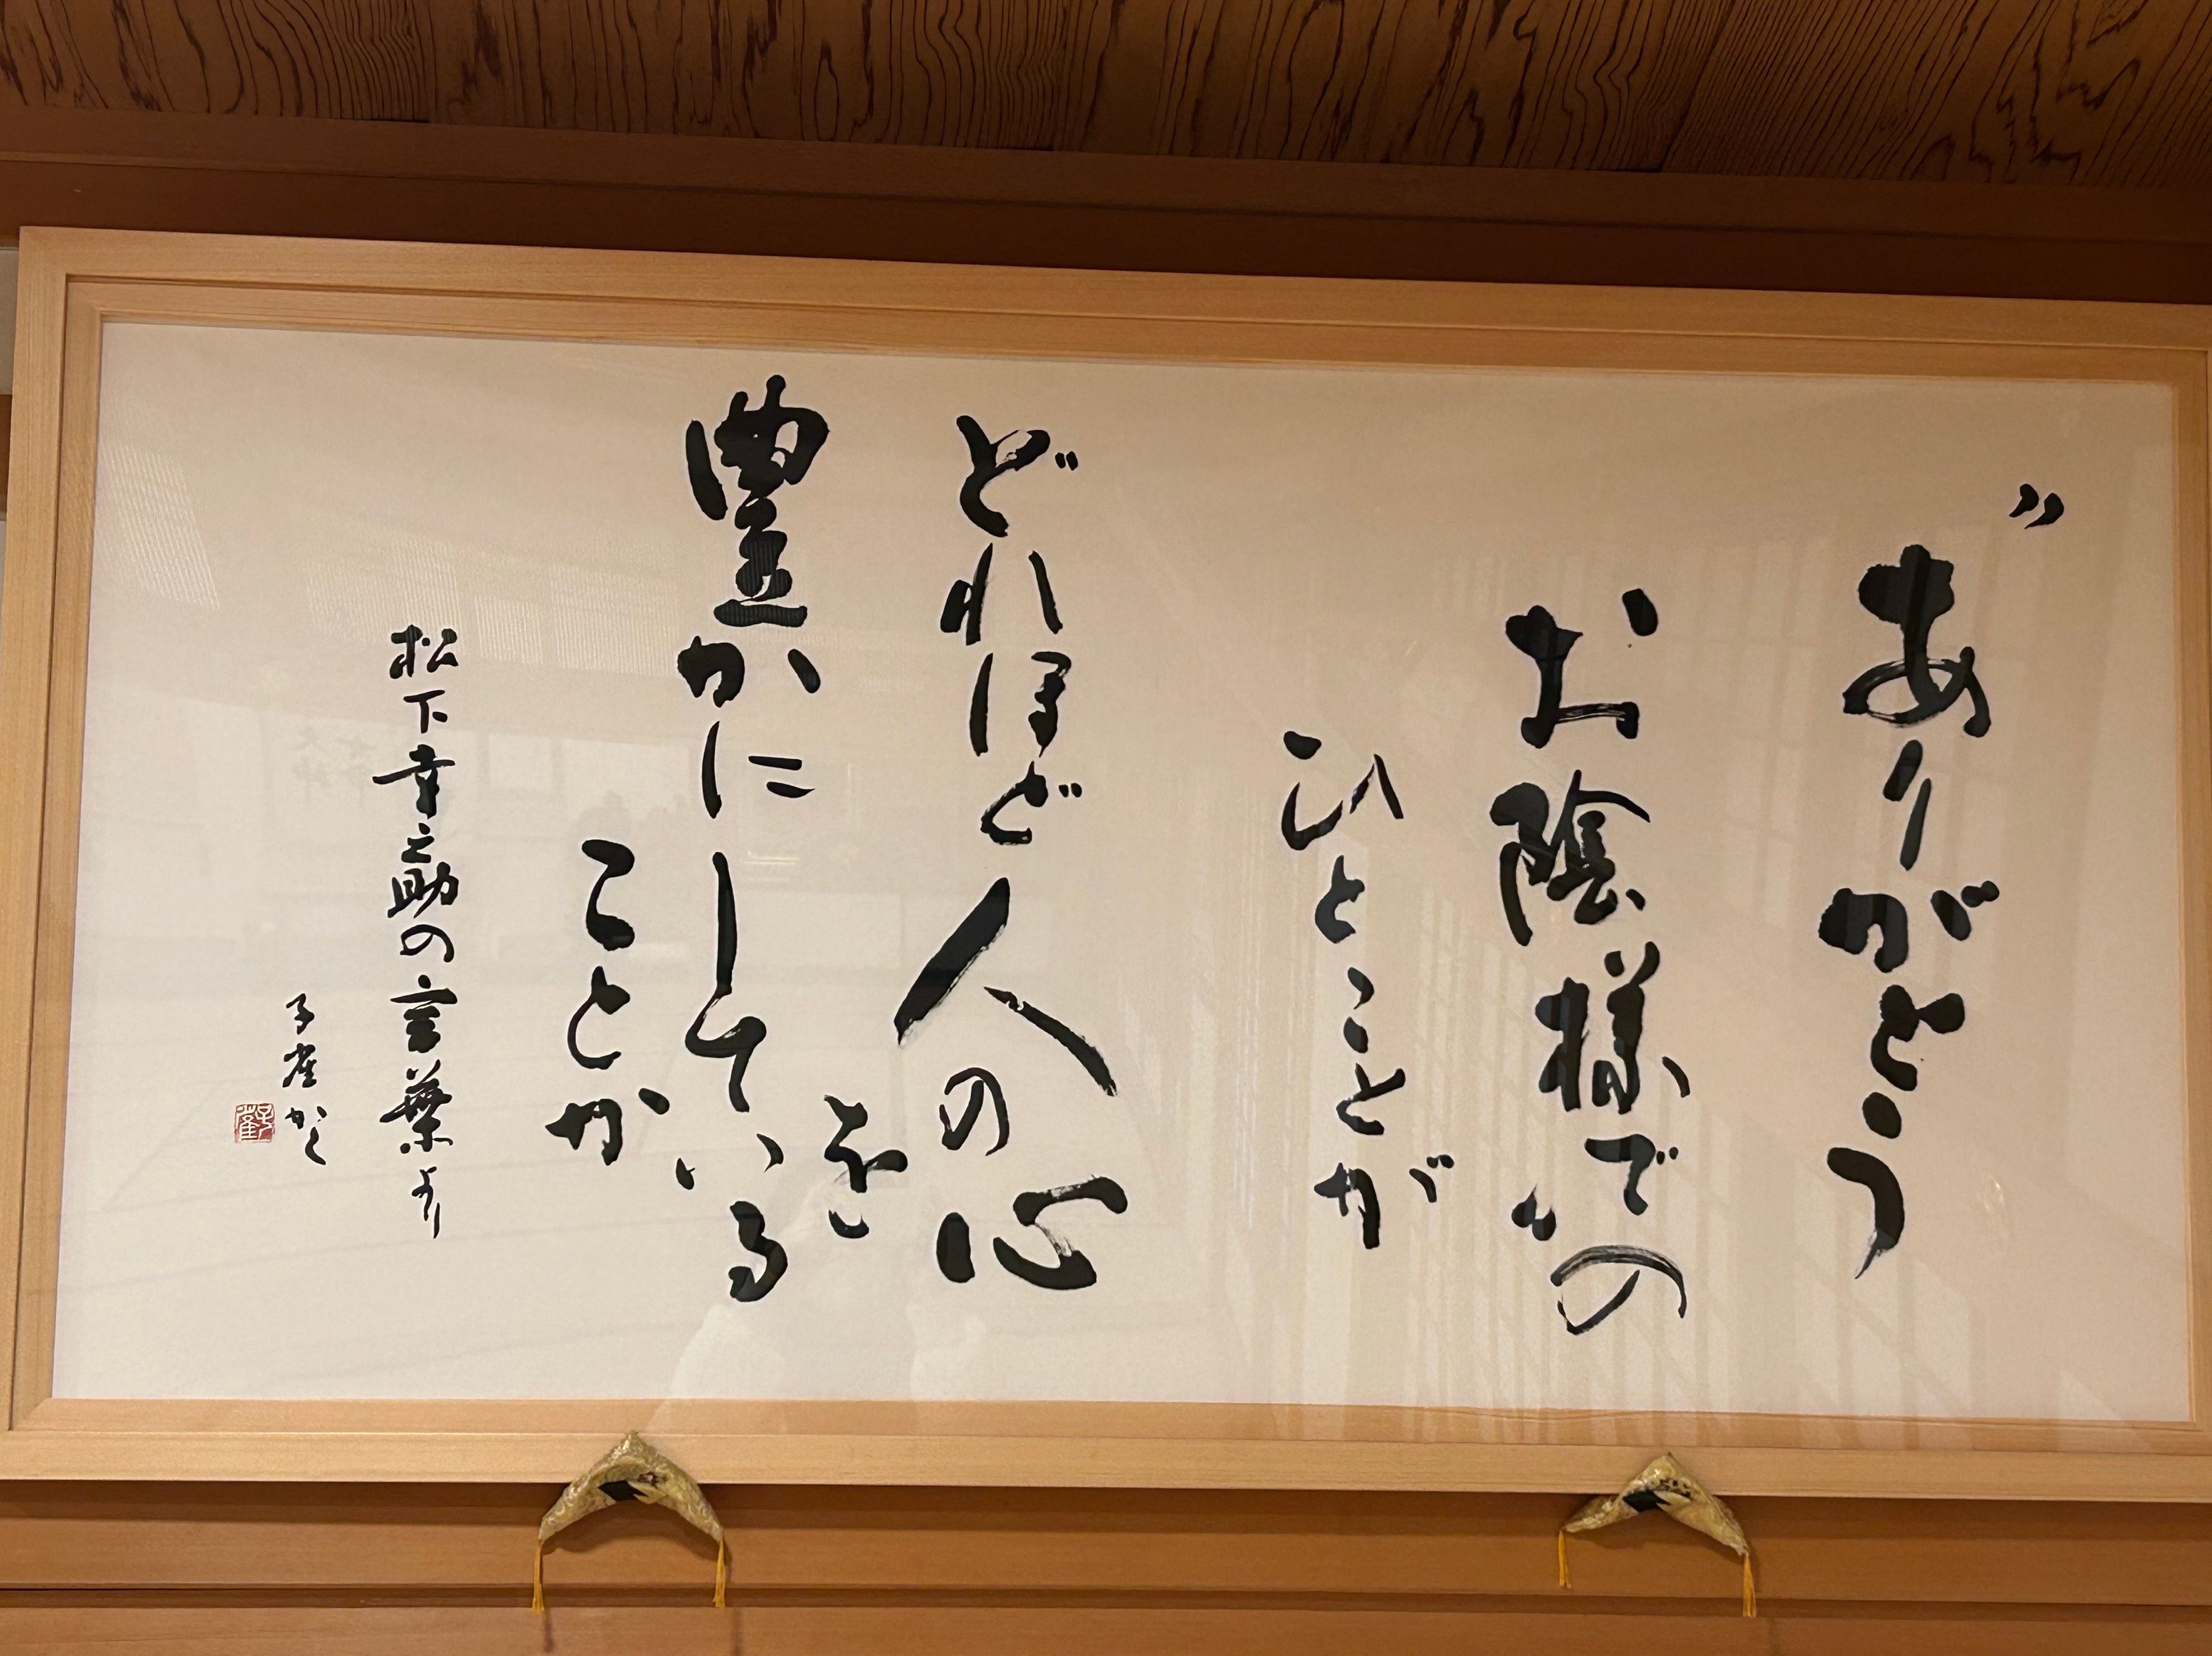 〝ありがとう
お陰様で〟の
ひとことが
どれほど人の心
を
豊かにしている
ことか
松下幸之助の言葉より
子雀かく